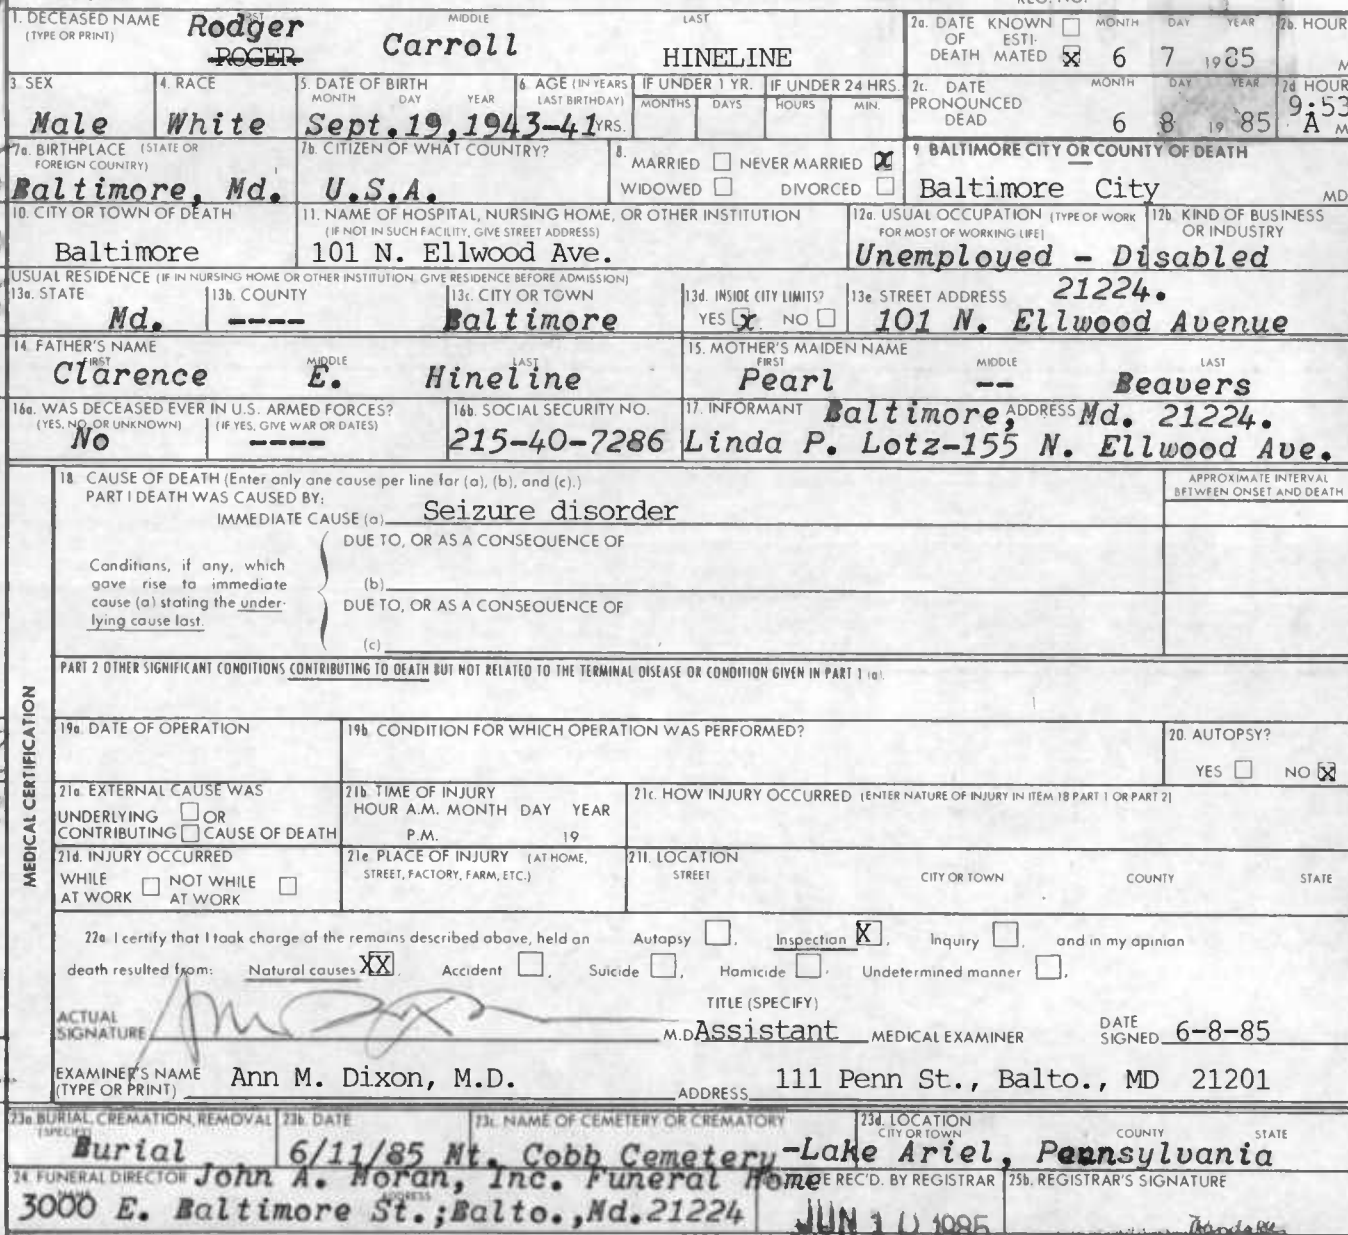 1. DECEASED NAME FIRST MIDDLE LAST
(TYPE OR PRINT)
Rodger
ROGER Carroll HINELINE
2a. DATE KNOWN ☐ MONTH DAY YEAR 2b. HOUR
OF ESTI-
DEATH MATED ☒ 6 7 1985 M
3 SEX Male
4. RACE White
5. DATE OF BIRTH
MONTH DAY YEAR
Sept.19,1943-41 YRS.
6 AGE (IN YEARS LAST BIRTHDAY)
IF UNDER 1 YR. IF UNDER 24 HRS.
MONTHS DAYS HOURS MIN.
2c. DATE MONTH DAY YEAR 2d HOUR
PRONOUNCED
DEAD 6 8 1985 9:53 A M
7a. BIRTHPLACE (STATE OR FOREIGN COUNTRY)
Baltimore, Md.
7b. CITIZEN OF WHAT COUNTRY?
U.S.A.
8. MARRIED ☐ NEVER MARRIED ☒
WIDOWED ☐ DIVORCED ☐
9 BALTIMORE CITY OR COUNTY OF DEATH
Baltimore City MD
10. CITY OR TOWN OF DEATH
Baltimore
11. NAME OF HOSPITAL, NURSING HOME, OR OTHER INSTITUTION
(IF NOT IN SUCH FACILITY, GIVE STREET ADDRESS)
101 N. Ellwood Ave.
12a. USUAL OCCUPATION (TYPE OF WORK FOR MOST OF WORKING LIFE)
12b. KIND OF BUSINESS OR INDUSTRY
Unemployed - Disabled
USUAL RESIDENCE (IF IN NURSING HOME OR OTHER INSTITUTION GIVE RESIDENCE BEFORE ADMISSION)
13a. STATE Md.
13b. COUNTY ----
13c. CITY OR TOWN Baltimore
13d. INSIDE CITY LIMITS? YES ☒ NO ☐
13e STREET ADDRESS 21224.
101 N. Ellwood Avenue
14. FATHER'S NAME
FIRST MIDDLE LAST
Clarence E. Hineline
15. MOTHER'S MAIDEN NAME
FIRST MIDDLE LAST
Pearl -- Beavers
16a. WAS DECEASED EVER IN U.S. ARMED FORCES?
(YES, NO, OR UNKNOWN) (IF YES, GIVE WAR OR DATES)
No ----
16b. SOCIAL SECURITY NO.
215-40-7286
17. INFORMANT ADDRESS
Baltimore, Md. 21224.
Linda P. Lotz-155 N. Ellwood Ave.
MEDICAL CERTIFICATION
18 CAUSE OF DEATH (Enter only one cause per line for (a), (b), and (c).)
APPROXIMATE INTERVAL BETWEEN ONSET AND DEATH
PART I DEATH WAS CAUSED BY:
IMMEDIATE CAUSE (a) Seizure disorder
DUE TO, OR AS A CONSEQUENCE OF
Conditions, if any, which
gave rise to immediate (b)
cause (a) stating the under-
lying cause last.
DUE TO, OR AS A CONSEQUENCE OF
(c)
PART 2 OTHER SIGNIFICANT CONDITIONS CONTRIBUTING TO DEATH BUT NOT RELATED TO THE TERMINAL DISEASE OR CONDITION GIVEN IN PART 1 (a).
19a. DATE OF OPERATION
19b. CONDITION FOR WHICH OPERATION WAS PERFORMED?
20. AUTOPSY?
YES ☐ NO ☒
21a. EXTERNAL CAUSE WAS
UNDERLYING ☐ OR
CONTRIBUTING ☐ CAUSE OF DEATH
21b. TIME OF INJURY
HOUR A.M. MONTH DAY YEAR
P.M. 19
21c. HOW INJURY OCCURRED (ENTER NATURE OF INJURY IN ITEM 18 PART 1 OR PART 2)
21d. INJURY OCCURRED
WHILE AT WORK ☐ NOT WHILE AT WORK ☐
21e PLACE OF INJURY (AT HOME, STREET, FACTORY, FARM, ETC.)
21f. LOCATION
STREET CITY OR TOWN COUNTY STATE
22a. I certify that I took charge of the remains described above, held an Autopsy ☐, Inspection ☒, Inquiry ☐, and in my opinion
death resulted from: Natural causes XX, Accident ☐, Suicide ☐, Homicide ☐, Undetermined manner ☐.
TITLE (SPECIFY)
ACTUAL SIGNATURE M.D. Assistant MEDICAL EXAMINER DATE SIGNED 6-8-85
EXAMINER'S NAME (TYPE OR PRINT) Ann M. Dixon, M.D. ADDRESS 111 Penn St., Balto., MD 21201
23a BURIAL, CREMATION, REMOVAL (SPECIFY)
Burial
23b. DATE
6/11/85
23c. NAME OF CEMETERY OR CREMATORY
Mt. Cobb Cemetery
23d. LOCATION
CITY OR TOWN COUNTY STATE
-Lake Ariel, Pennsylvania
24. FUNERAL DIRECTOR John A. Moran, Inc. Funeral Home
NAME ADDRESS
3000 E. Baltimore St.;Balto.,Md.21224
E REC'D. BY REGISTRAR
JUN 10 1985
25b. REGISTRAR'S SIGNATURE